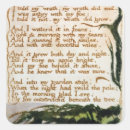 I was angry with my foe:
I told it not, my wrath did grow.
And I waterd it in fears,
Night & morning with my tears:
And I sunned it with smiles,
And with soft deceitful wiles.
And it grew both day and night,
Till it bore an apple bright.
And my foe beheld it shine,
And he knew that it was mine.
And into my garden stole,
When the night had veild the pole;
In the morning glad I see,
My foe outstretchd beneath the tree.